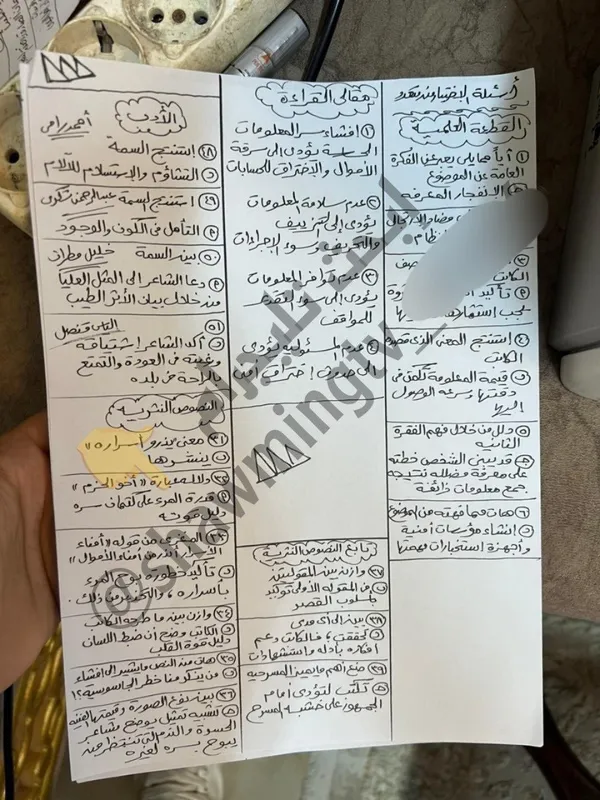 أسئلة الاختبار
القطعة العلمية
① أياً مما يلي يعبر عن الفكرة
العامة عن الموضوع
الانفجار المعرفي
نظام
الكاتب
يجب استغلالها
④ استنتج المعنى الذي قصده
الكاتب
قيمة المعلومة تكمن في
دقتها وسرعه الوصول
إليها
⑤ دلل من خلال فهم الفقرة
الثانيه
قد يبني الشخص خطته
على معرفة مضلله نتيجه
جمع معلومات زائفة
⑥ هات مما فهمته من الموضوع
إنشاء مؤسسات أمنية
وأجهزة استخبارات مهمتها
مقالى القراءة
① إفشاء سر المعلومات
الحساسة يؤدي الى سرقة
الأموال والاختراق للحسابات
② عدم سلامة المعلومات
يؤدى الى التزييف
والتحريف وسوء الإجراءات
③ عدم توافر المعلومات
يؤدى إلى سوء التقدير
للمواقف
④ عدم المسئولية يؤدى
الى حدوث اختراق أمن
تابع النصوص النثرية
٣٧ وازن بين المقولتين
المقوله الأولى توكيد
بأسلوب القصر
٣٨ بين الى أى مدى
تحققت، فالكاتب دعم
أفكاره بأدله واستشهادات
٣٩ ضع أهم ما يميز المسرحيه
تكتب لتؤدى أمام
الجمهور على خشبة المسرح
الأدب
أحمد رامى
٤٨ استنتج السمة
التشاؤم والاستسلام للآلام
٤٩ استنتج السمة عبد الرحمن شكرى
التأمل فى الكون والوجود
٥٠ بين السمة خليل مطران
دعا الشاعر الى المثل العليا
من خلال بيان الأثر الطيب
٥١ الياس قنصل
أكد الشاعر اشتياقه
ورغبته فى العودة والتمتع
بالراحة في بلده
النصوص النثرية
٣١ معنى يذرو أسراره"
ينشرها
٣٢ دلالة عبارة "أخو الحزم"
قدرة المرء على كتمان سره
دليل قوته
٣٣ المغزى من قوله "أمناء
الأسرار أندر من أمناء الأموال"
تأكيد خطورة بوح المرء
بأسراره، والتحذير من ذلك.
٣٤ وازن بين ما طرحه الكاتب
الكاتب وضح أن ضبط اللسان
دليل قوة القلب
٣٥ هات من النص ما يشير الى إفشاء
من يتكر منا خطر الجاسوسية؟!
٣٦ بين نوع الصورة وقيمتها الفنيه
تشبيه تمثيل يوضح مشاعر
الحسرة والندم التى تنتظر من
يبوح بسره لغيره
@shawmingtv_